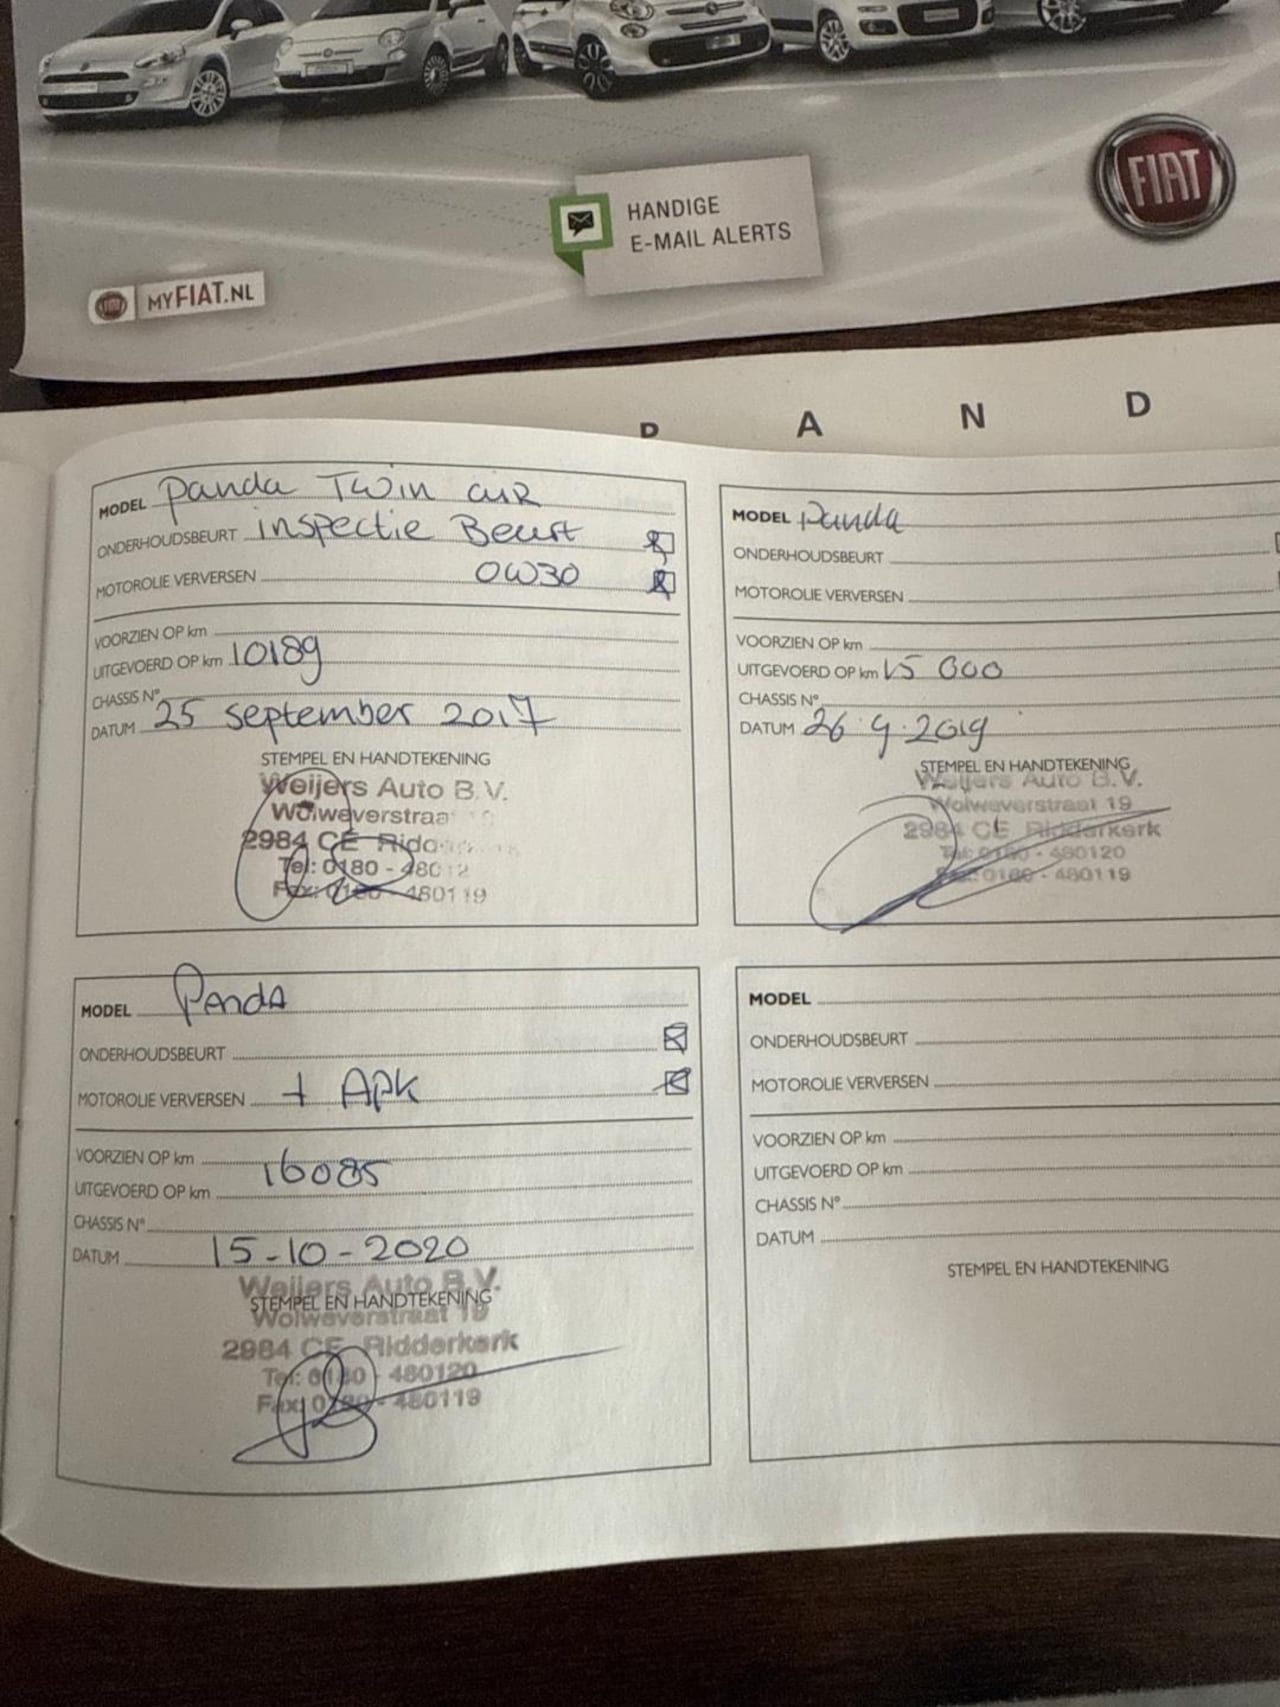 FIAT
HANDIGE
E-MAIL ALERTS
MYFIAT.NL
P A N D
MODEL Panda Twin air
ONDERHOUDSBEURT inspectie Beurt
MOTOROLIE VERVERSEN 0W30
VOORZIEN OP km
UITGEVOERD OP km 10189
CHASSIS N°
DATUM 25 september 2017
STEMPEL EN HANDTEKENING
Weijers Auto B.V.
Wolweverstraa
2984 CE Ridd
Tel: 0180 - 48012
Fax: 0180 - 480119
MODEL Panda
ONDERHOUDSBEURT
MOTOROLIE VERVERSEN
VOORZIEN OP km
UITGEVOERD OP km 15 000
CHASSIS N°
DATUM 26.9.2019
STEMPEL EN HANDTEKENING
Weijers Auto B.V.
Wolweverstraat 19
2984 CE Ridderkerk
Tel: 0180 - 480120
Fax: 0180 - 480119
MODEL Panda
ONDERHOUDSBEURT
MOTOROLIE VERVERSEN + APK
VOORZIEN OP km
UITGEVOERD OP km 16085
CHASSIS N°
DATUM 15-10-2020
STEMPEL EN HANDTEKENING
Weijers Auto B.V.
Wolweverstraat 19
2984 CE Ridderkerk
Tel: 0180 - 480120
Fax: 0180 - 480119
MODEL
ONDERHOUDSBEURT
MOTOROLIE VERVERSEN
VOORZIEN OP km
UITGEVOERD OP km
CHASSIS N°
DATUM
STEMPEL EN HANDTEKENING